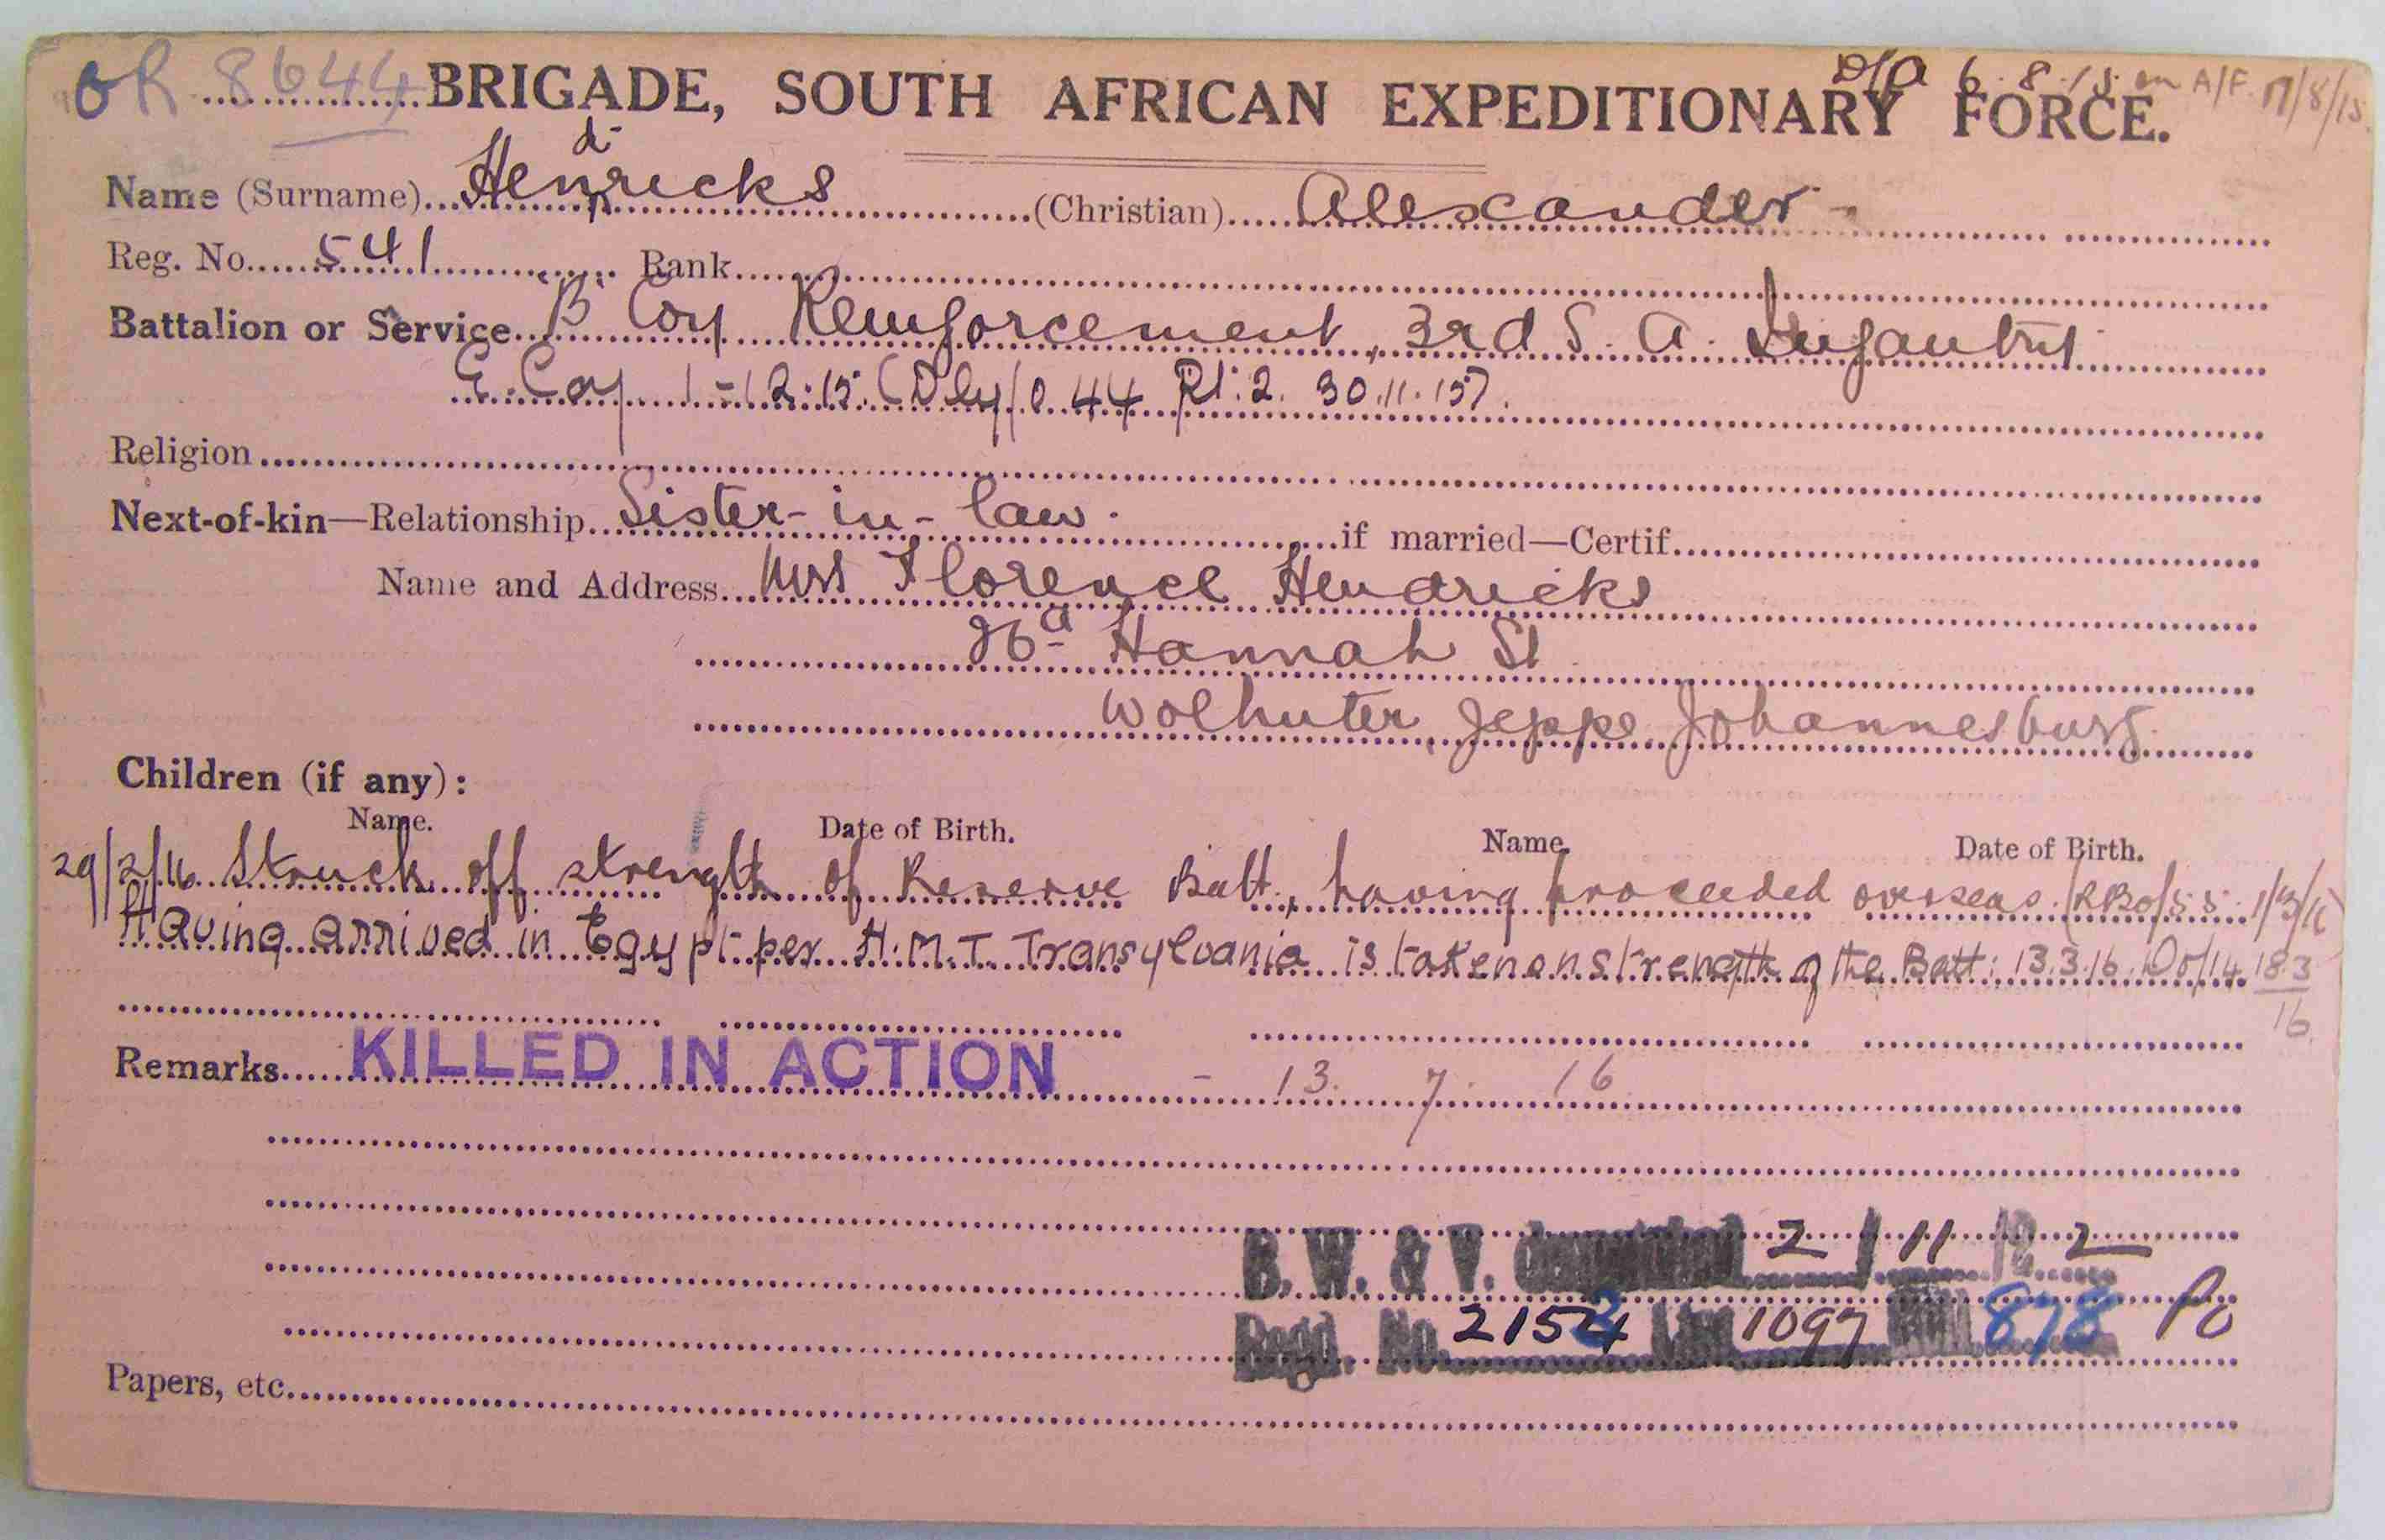 OR 8644 BRIGADE, SOUTH AFRICAN EXPEDITIONARY FORCE. D/A 6.8.15 on A/F. 17/8/15.
Name (Surname) Hendricks (Christian) Alexander
Reg. No. 541 Rank
Battalion or Service B Coy Reinforcement, 3rd S. A. Infantry
E. Coy 1-12-15. (Dly/O 44 Pt. 2. 30.11.15).
Religion
Next-of-kin—Relationship Sister-in-law. if married—Certif.
Name and Address Mrs Florence Hendricks
26a Hannah St
Wolhuter, Jeppe, Johannesburg
Children (if any):
Name. Date of Birth. Name. Date of Birth.
29/2/16 Struck off strength of Reserve Batt., having proceeded overseas. (RBO/55. 1/3/16)
Having arrived in Egypt per H.M.T. Transylvania is taken on strength of the Batt: 13.3.16. DO/14. 18.3 16
Remarks KILLED IN ACTION - 13. 7. 16
B. W. & V. 2/11 2
Regd. No. 2153 1097 878 Po
Papers, etc.